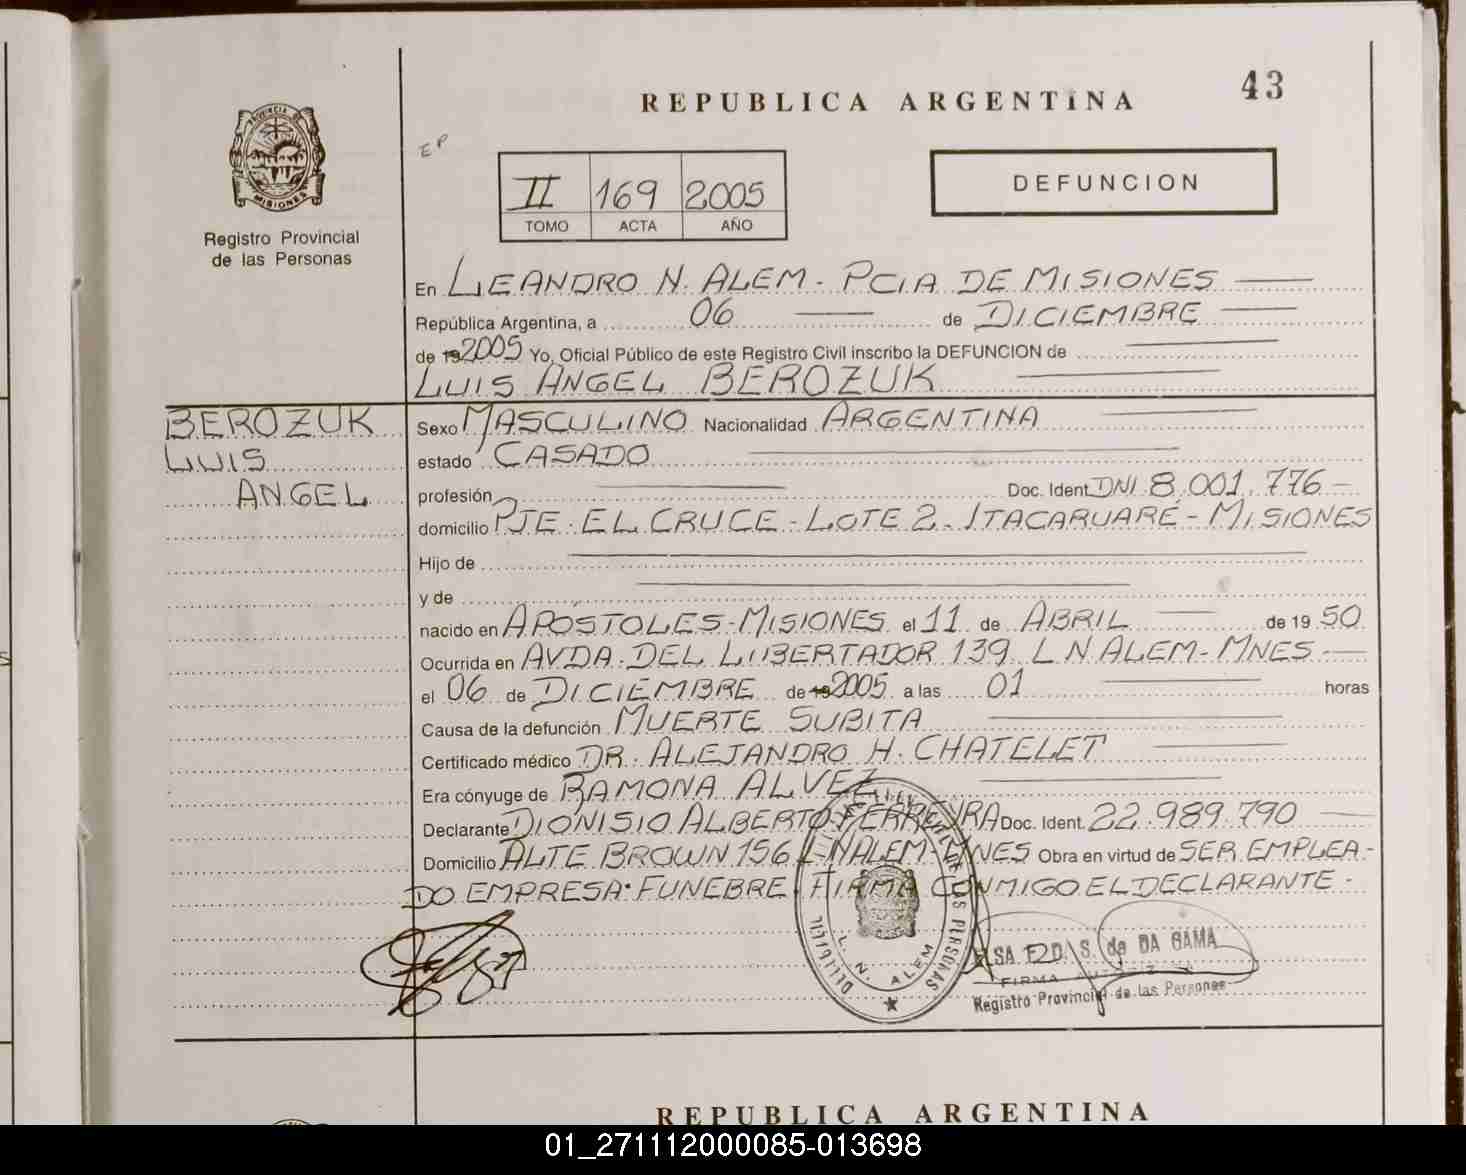 43
REPUBLICA ARGENTINA
EP
PROVINCIA DE
MISIONES
II 169 2005
TOMO ACTA AÑO
DEFUNCION
Registro Provincial
de las Personas
En LEANDRO N. ALEM - PCIA DE MISIONES
República Argentina, a 06 de DICIEMBRE
de 192005 Yo, Oficial Público de este Registro Civil inscribo la DEFUNCION de
LUIS ANGEL BEROZUK
BEROZUK
LUIS
ANGEL
Sexo MASCULINO Nacionalidad ARGENTINA
estado CASADO
profesión Doc. Ident. DNI 8.001.776 -
domicilio PJE. EL CRUCE - LOTE 2 - ITACARUARE - MISIONES
Hijo de
y de
nacido en APOSTOLES - MISIONES el 11 de ABRIL de 19 50
Ocurrida en AVDA. DEL LIBERTADOR 139 L N ALEM - MNES
el 06 de DICIEMBRE de 192005 a las 01 horas
Causa de la defunción MUERTE SUBITA
Certificado médico DR. ALEJANDRO H. CHATELET
Era cónyuge de RAMONA ALVEZ
Declarante DIONISIO ALBERTO FERREYRA Doc. Ident. 22.989.790
Domicilio ALTE BROWN 156 L-N ALEM - MNES Obra en virtud de SER EMPLEA-
DO EMPRESA FUNEBRE. FIRMA CONMIGO EL DECLARANTE -
DE LAS PERSONAS
L. N. ALEM
S. de DA GAMA
FIRMA
Registro Provincial de las Personas
REPUBLICA ARGENTINA
01_271112000085-013698